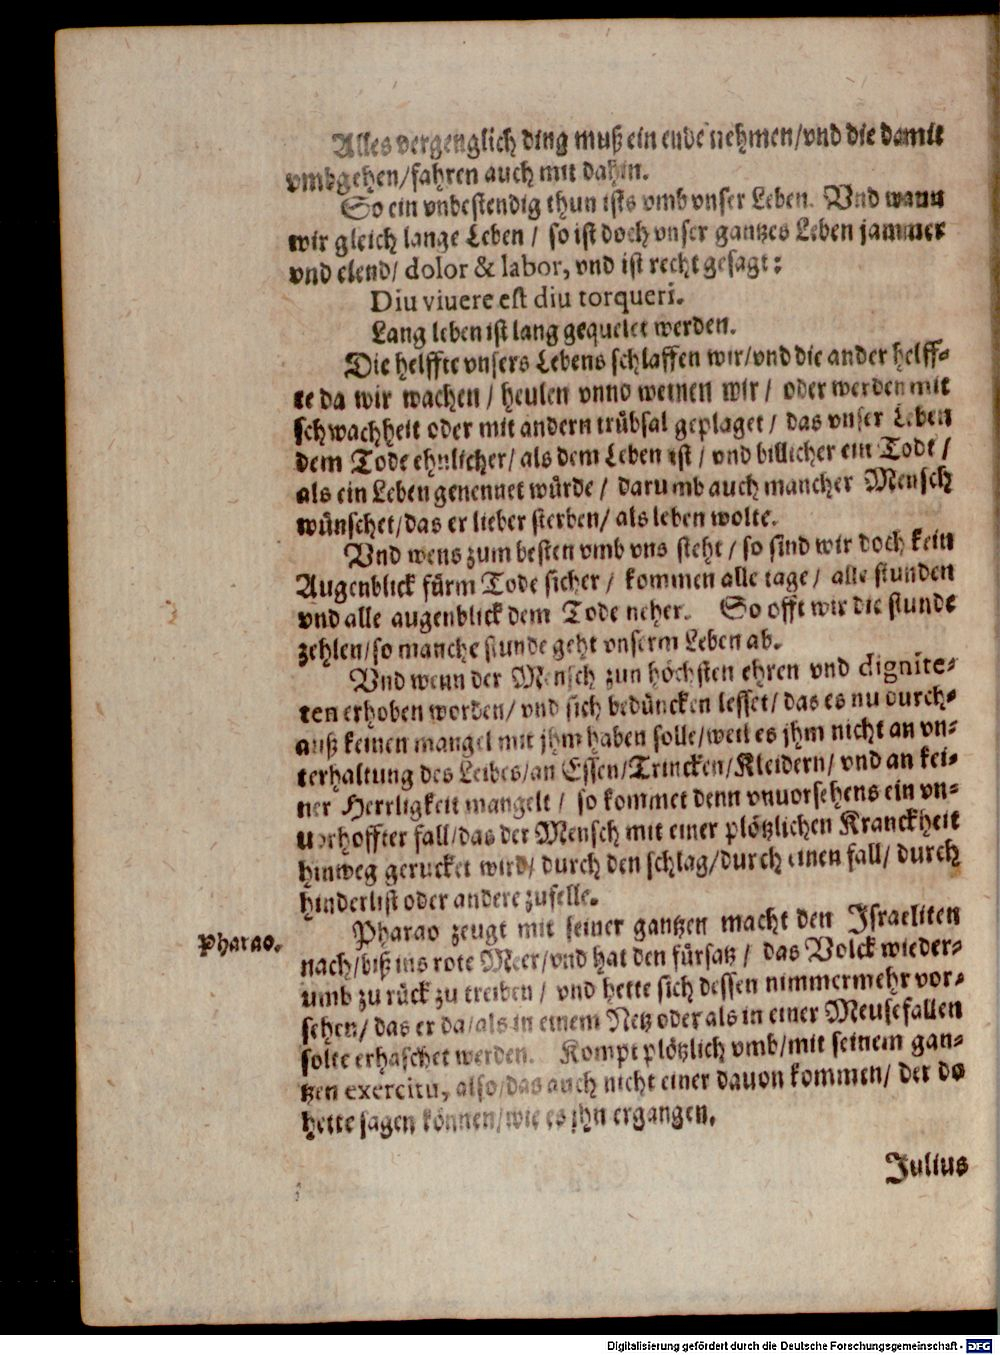 Alles vergenglich ding muß ein ende nehmen/vnd die damit
vmbgehen/fahren auch mit dahin.
So ein vnbestendig thun ists vmb vnser Leben. Vnd wann
wir gleich lange Leben / so ist doch vnser gantzes Leben jammer
vnd elend/ dolor & labor, vnd ist recht gesagt:
Diu viuere est diu torqueri.
Lang leben ist lang gequelet werden.
Die helffte vnsers Lebens schlaffen wir/vnd die ander helff-
te da wir wachen / heulen vnnd weinen wir / oder werden mit
schwachheit oder mit andern trübsal geplaget / das vnser Leben
dem Tode ehnlicher/ als dem Leben ist / vnd billicher ein Todt /
als ein Leben genennet würde / darumb auch mancher Mensch
wünschet/das er lieber sterben/ als leben wolte.
Vnd wens zum besten vmb vns steht / so sind wir doch kein
Augenblick fürm Tode sicher / kommen alle tage / alle stunden
vnd alle augenblick dem Tode neher. So offt wir die stunde
zehlen/so manche stunde geht vnserm Leben ab.
Vnd wenn der Mensch zun höchsten ehren vnd dignite-
ten erhoben worden/ vnd sich bedüncken lesset/ das es nu durch-
auß keinen mangel mit jhm haben solle/weil es jhm nicht an vn-
terhaltung des Leibes/an Essen/Trincken/Kleidern/ vnd an kei-
ner Herrligkeit mangelt / so kommet denn vnuorsehens ein vn-
uorhoffter fall/das der Mensch mit einer plötzlichen Kranckheit
hinweg gerucket wird/ durch den schlag/durch einen fall/ durch
hinderlist oder andere zufelle.
Pharao zeugt mit seiner gantzen macht den Israeliten
Pharao.
nach/biß ins rote Meer/vnd hat den fürsatz / das Volck wieder-
umb zu rück zu treiben / vnd hette sich dessen nimmermehr vor-
sehen/ das er da/als in einem Netz oder als in einer Meusefallen
solte erhaschet werden. Kompt plötzlich vmb/mit seinem gan-
tzen exercitu, also/das auch nicht einer dauon kommen/ der do
hette sagen können/wie es jhn ergangen.
Julius
Digitalisierung gefördert durch die Deutsche Forschungsgemeinschaft - DFG